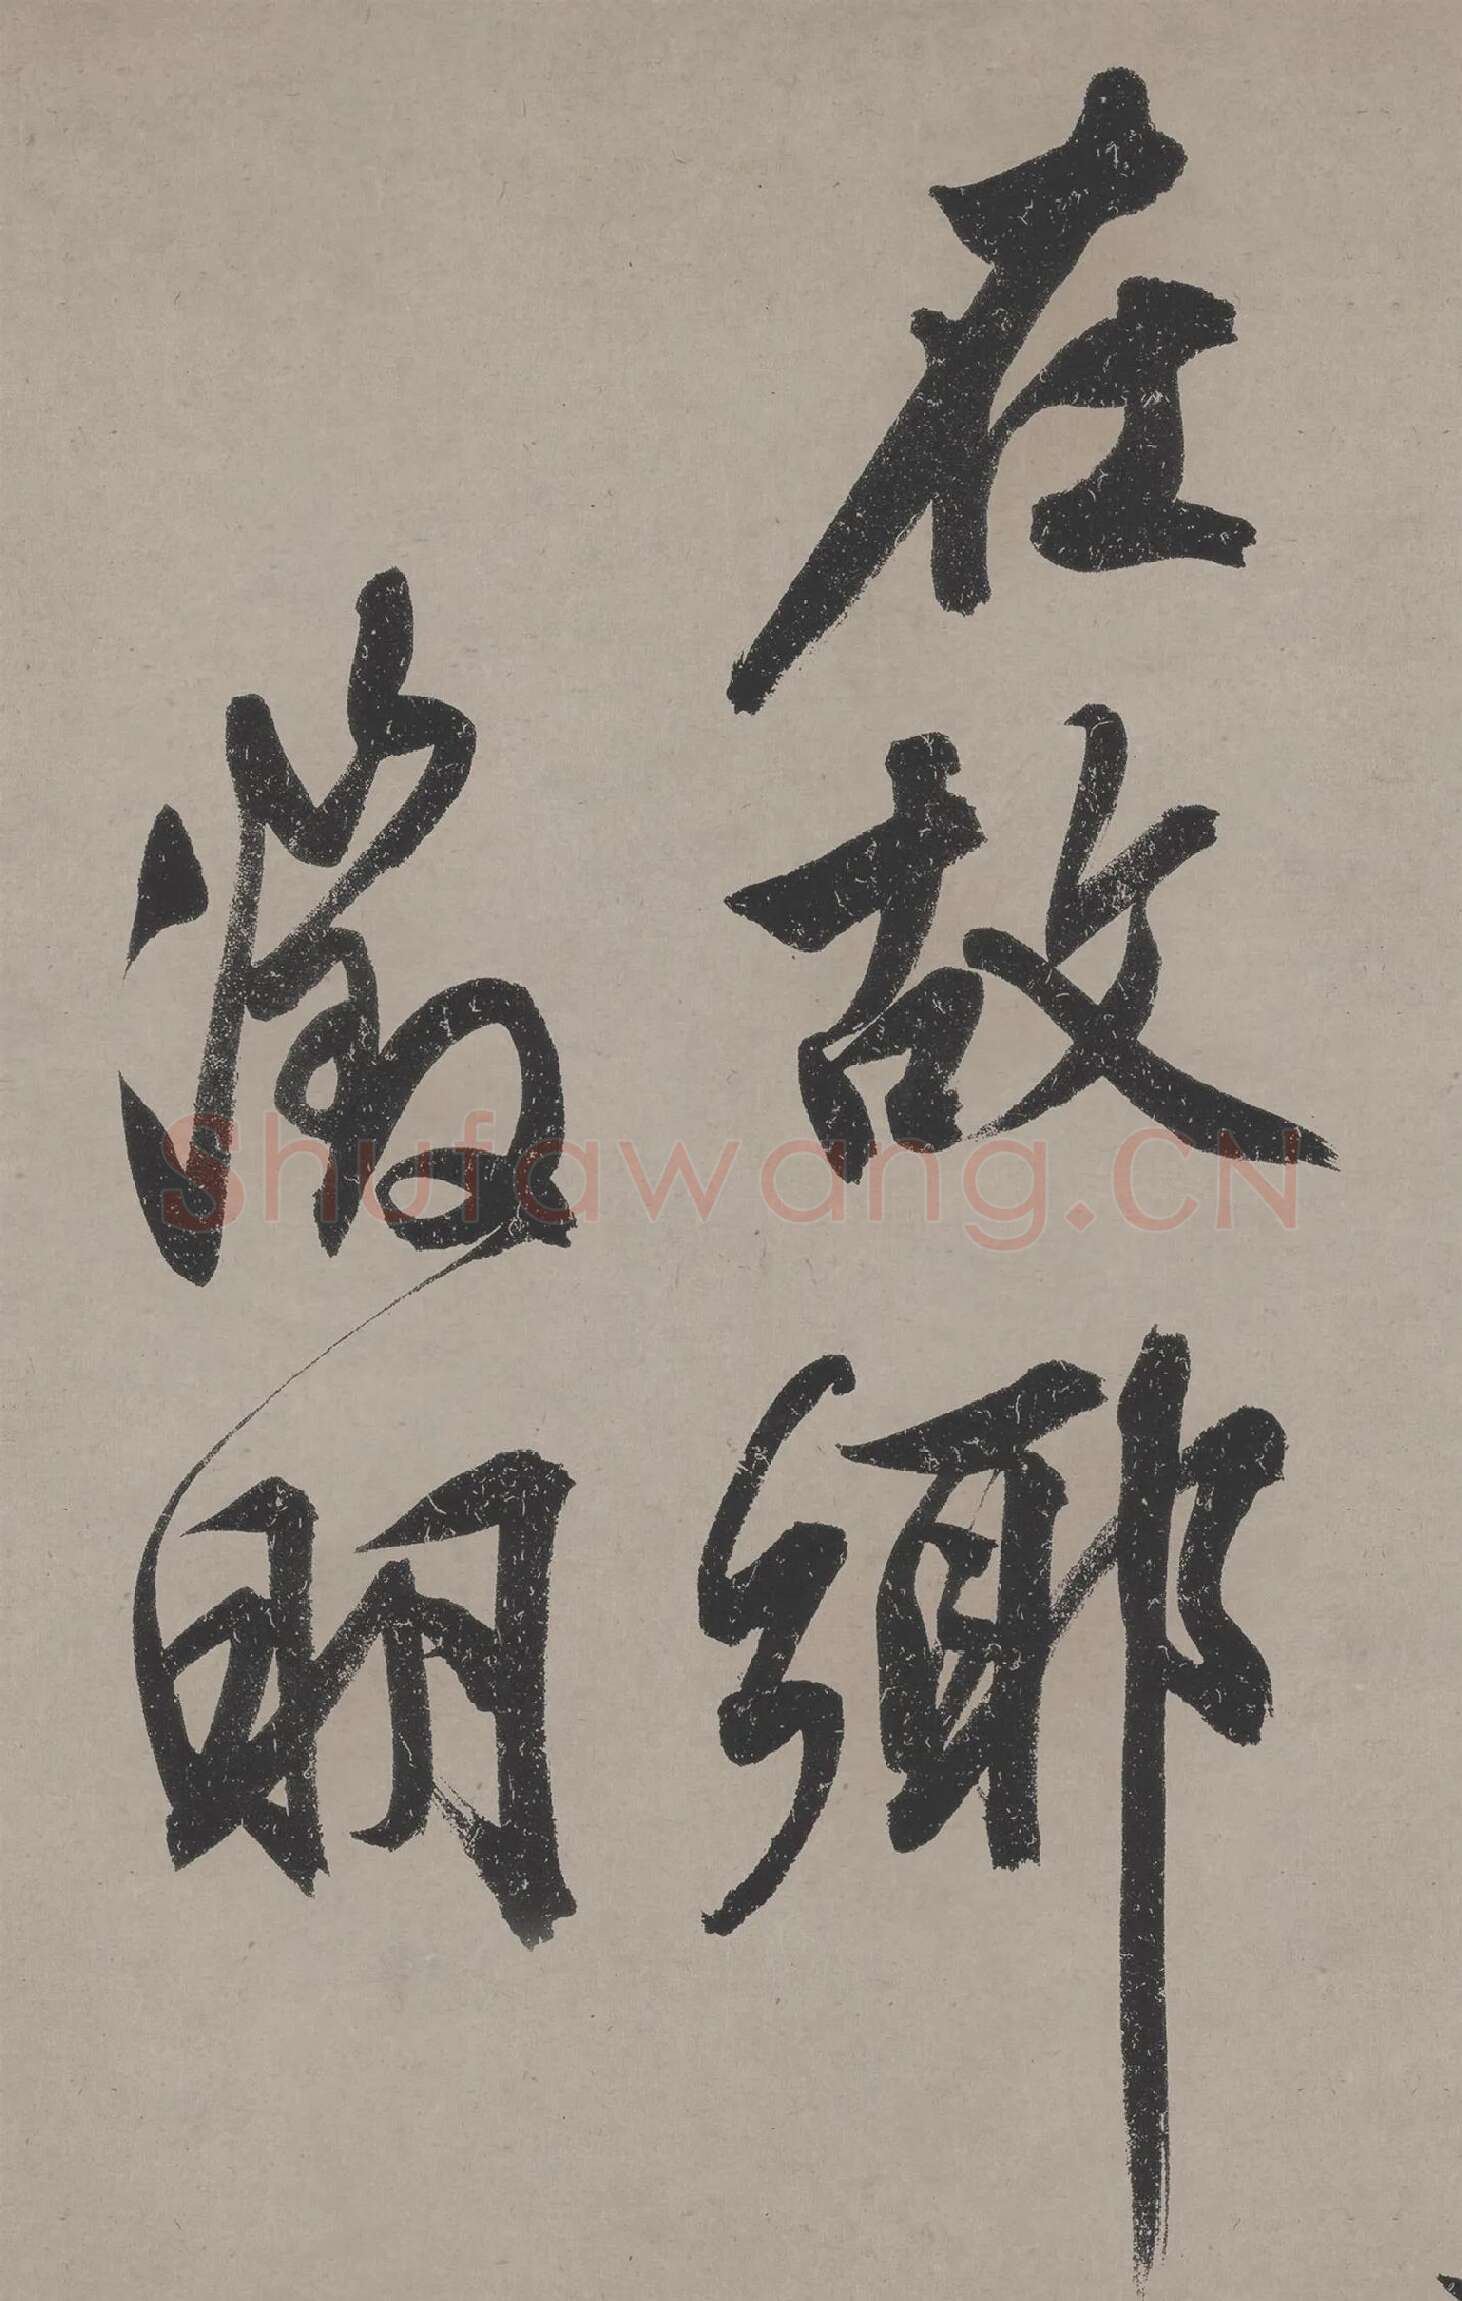 在故鄉
徵明
Shufawang.CN